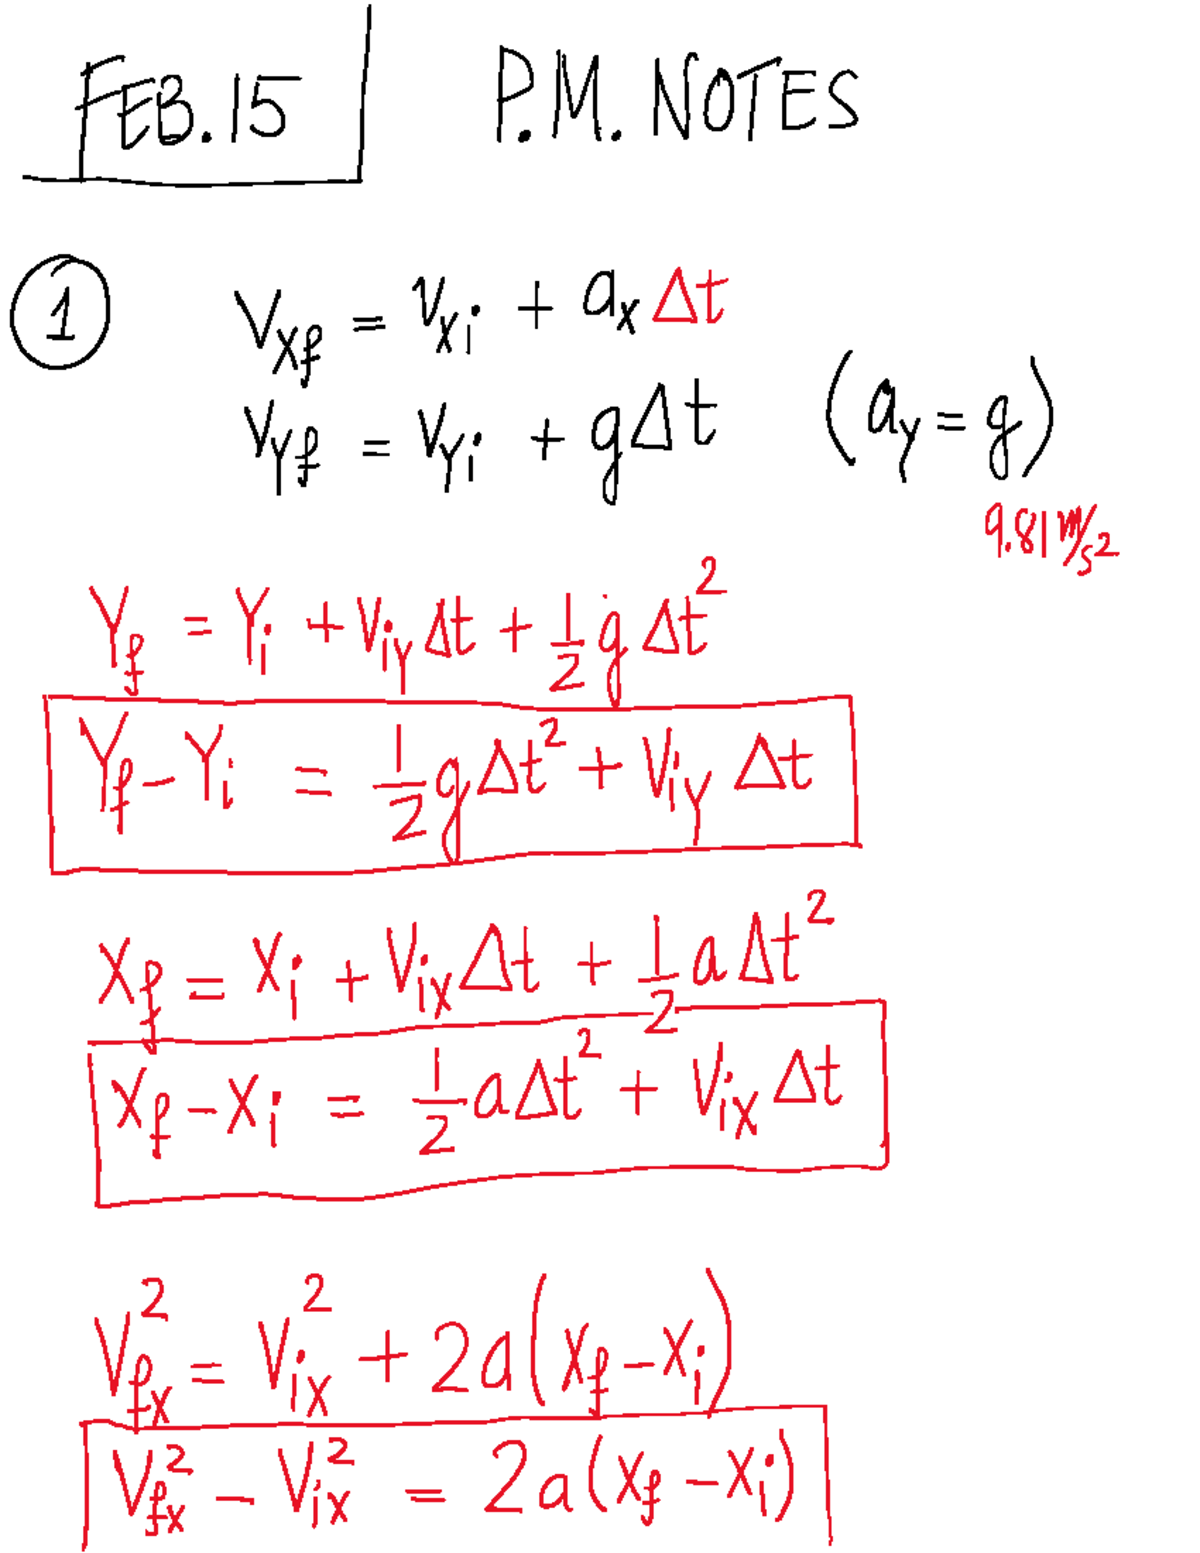 FEB. 15
P.M. NOTES
1
Vxf = vxi + ax Δt
Vyf = Vyi + gΔt (ay = g)
9.81 m/s2
Yf = Yi + Viy Δt + 1/2 g Δt²
Yf - Yi = 1/2 g Δt² + Viy Δt
Xf = Xi + Vix Δt + 1/2 a Δt²
Xf - Xi = 1/2 a Δt² + Vix Δt
Vfx² = Vix² + 2a(Xf - Xi)
Vfx² - Vix² = 2a(Xf - Xi)